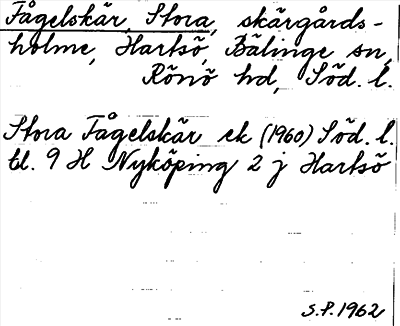 Fågelskär, Stora, skärgårds-
holme, Hartsö, Bälinge sn,
Rönö hd, Söd. l.
Stora Fågelskär ek (1960) Söd. l.
bl. 9 H Nyköping 2 j Hartsö
S.P. 1962